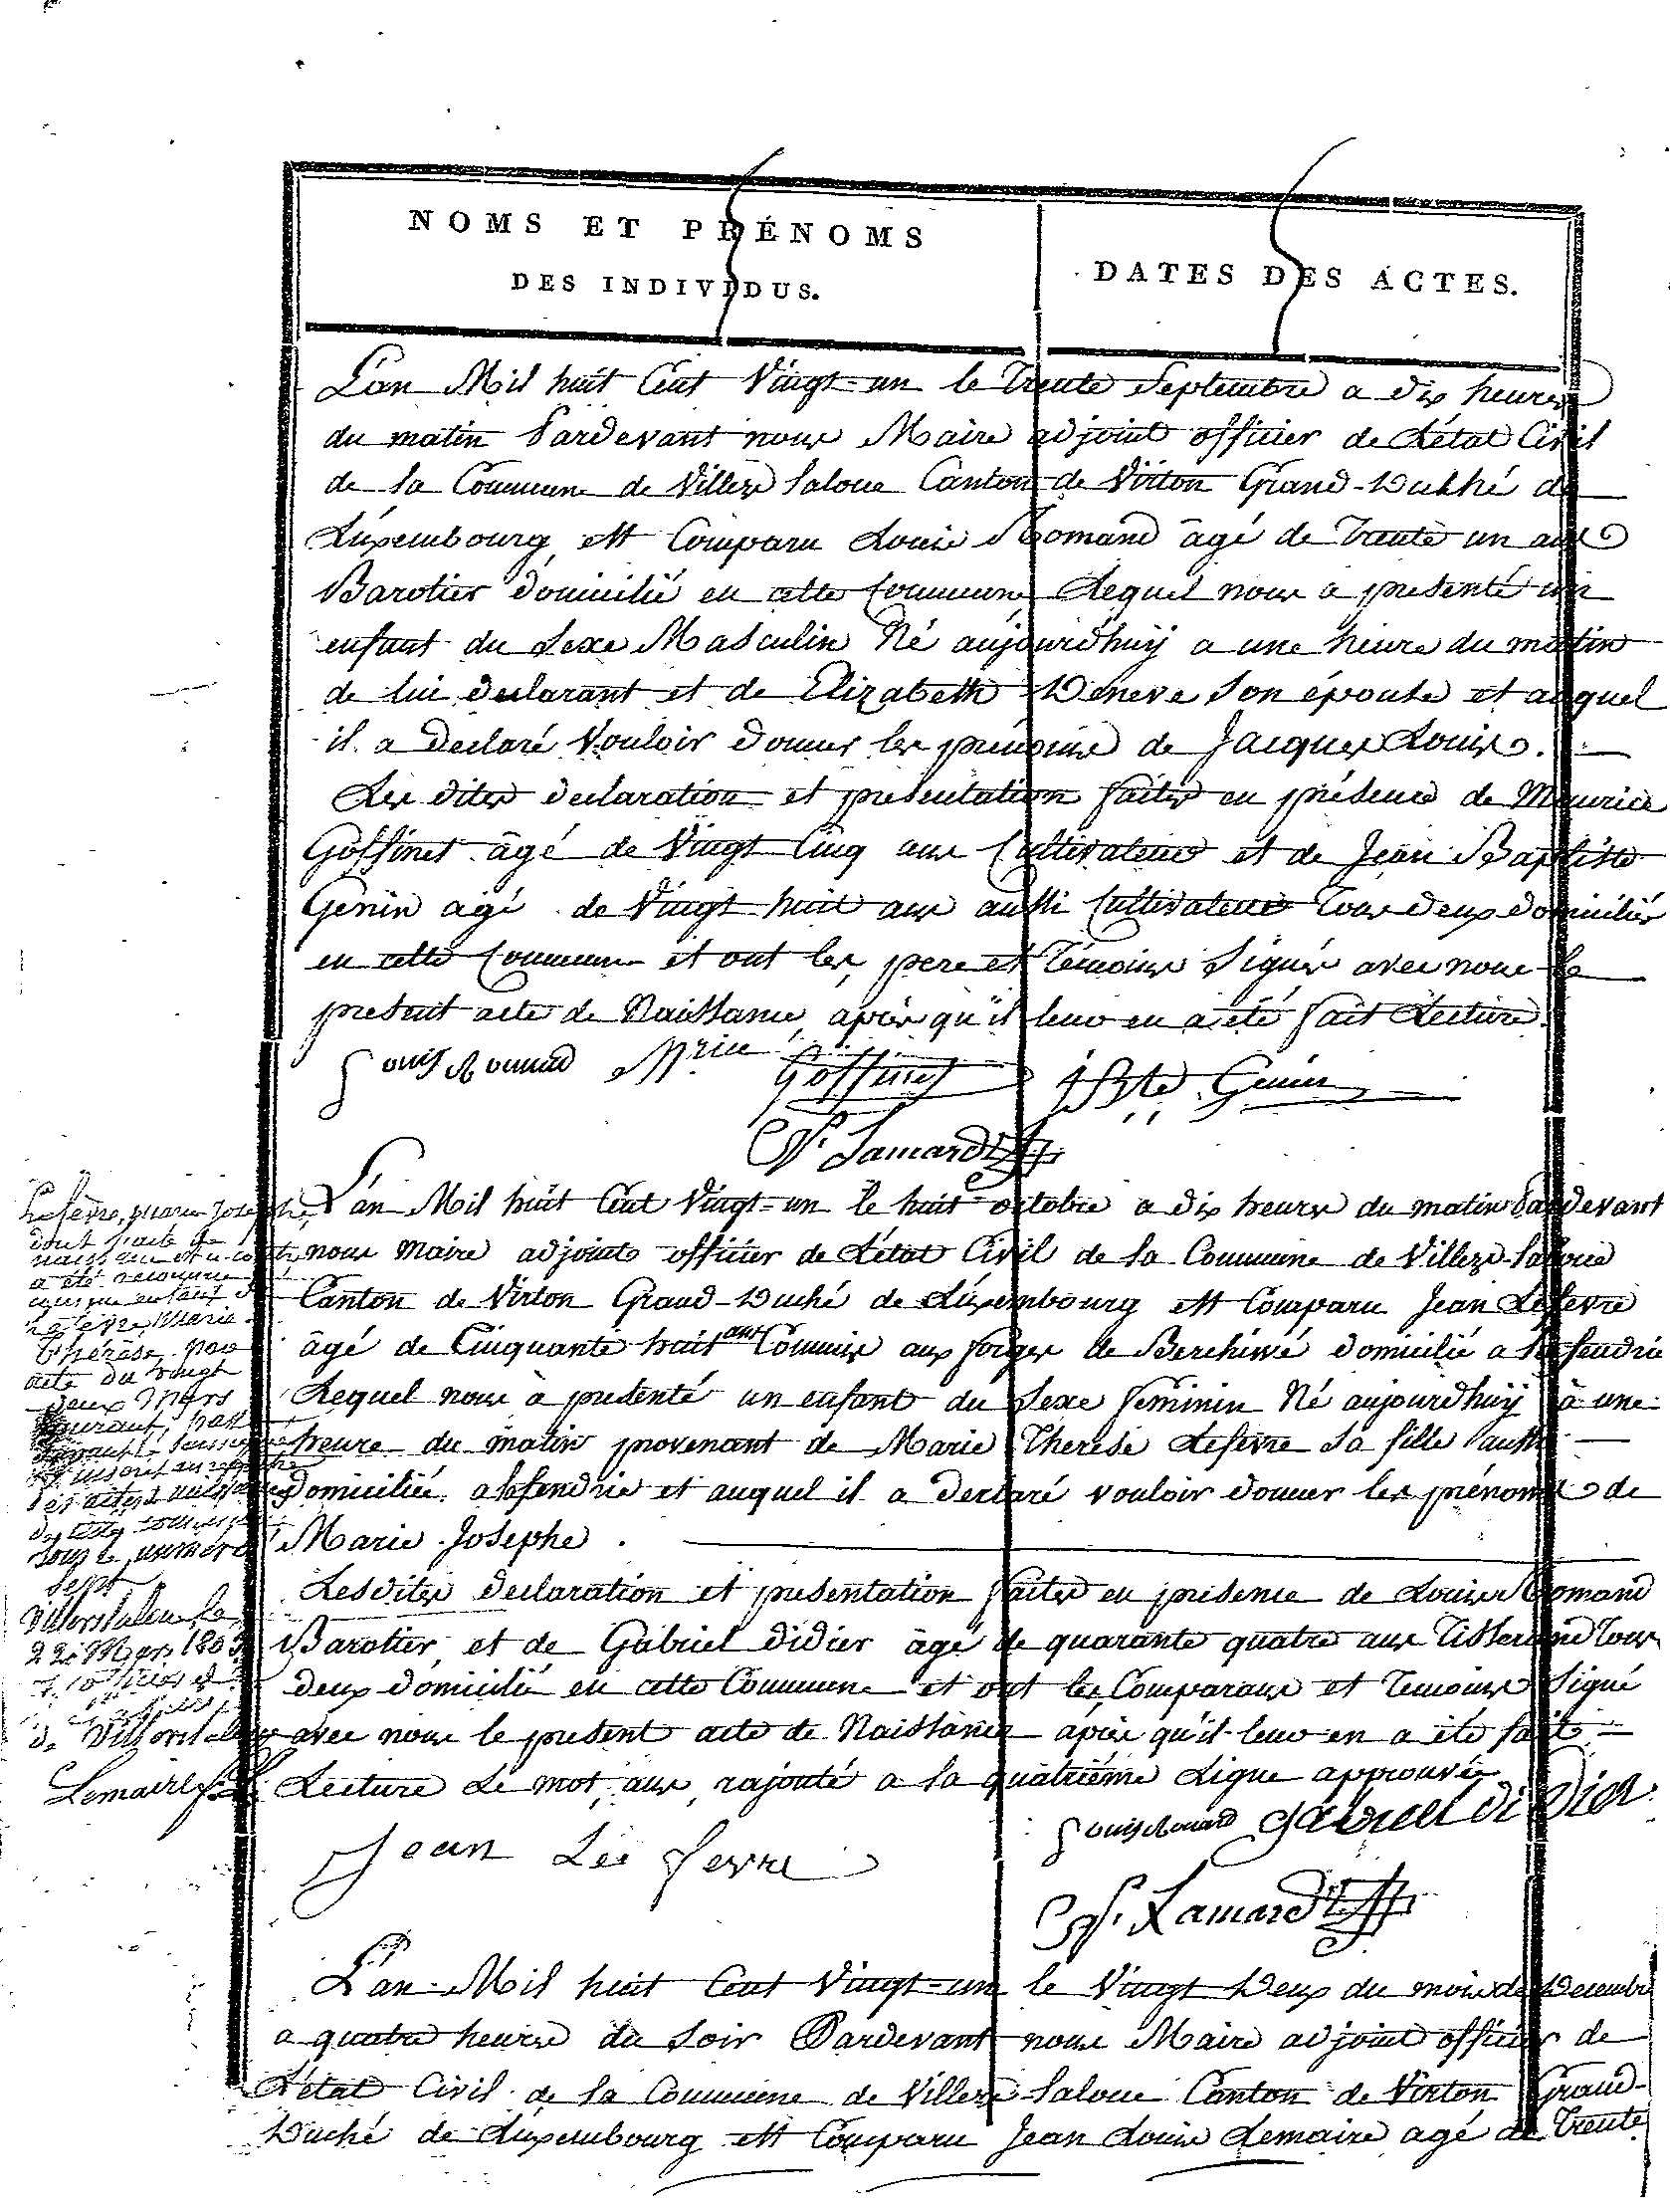 NOMS ET PRÉNOMS
DES INDIVIDUS.
DATES DES ACTES.
L'an Mil huit Cent Vingt-un le Trente Septembre a dix heures
du matin Pardevant nous Maire adjoint officier de L'état Civil
de la Commune de Villers Laloue Canton de Virton Grand-Duchhé de
Luxembourg est Comparu Louis Romand âgé de Trente un ans
Barotier domicilié en cette Commune Lequel nous a presenté un
enfant du Sexe Masculin Né aujourdhuÿ a une heure du matin
de lui declarant et de Elizabeth Deneve Son épouse et auquel
il a declaré Vouloir donner les prénoms de Jacques Louis.
Les dites declaration et presentation faites en présence de Maurice
Goffinet âgé de Vingt Cinq ans Cultivateur et de Jean Baptiste
Genin agé de Vingt huit ans aussi Cultivateur Tous deux domiciliés
en cette Commune et ont les pere et Témoins Signés avec nous le
present acte de Naissance, après qu'il leur en a été fait Lecture.
Louis Romand Mrice Goffinet jBte Genin
Lamard
L'an Mil huit Cent Vingt-un le huit octobre a dix heures du matin Pardevant
nous Maire adjoint officier de L'état Civil de la Commune de Villers-Laloue
Canton de Virton Grand-Duché de Luxembourg est Comparu Jean Lefevre
âgé de Cinquante huit ans Commis aux forges de Berchiwé domicilié a la fendrie
Lequel nous à presenté un enfant du Sexe Feminin Né aujourdhuÿ à une
heure du matin provenant de Marie Therese Lefevre Sa fille aussi
domiciliée a la fendrie et auquel il a declaré vouloir donner les prénoms de
Marie Josephe.
Lesdites declaration et presentation faites en presence de Louis Romand
Barotier et de Gabriel Didier âgé de quarante quatre ans Tisserand Tous
deux domicilié en cette Commune et ont les Comparans et Temoins Signé
avec nous le present acte de Naissance après qu'il leur en a été fait
Lecture Le mot, ans, rajouté a la quatriéme Ligne approuvée
Louis Romand Gabriel didier
Jean Lee fevre
Lamard
Lefèvre, Marie Josephe,
dont l'acte de
naissance est ci-contre
a été reconnue
Lefèvre, Marie
Thérèse par
acte du vingt
deux Mars
courant,
des actes de naissance
sous le numéro
Sept
Villers la loue, le
22 Mars
de Villers la loue
Lemaire
L'an Mil huit Cent Vingt-un le Vingt Deux du mois de Decembre
a quatre heures du Soir Pardevant nous Maire adjoint officier de
L'état Civil de la Commune de Villers Laloue Canton de Virton Grand-
Duché de Luxembourg est Comparu Jean Louis Lemaire agé de Trente